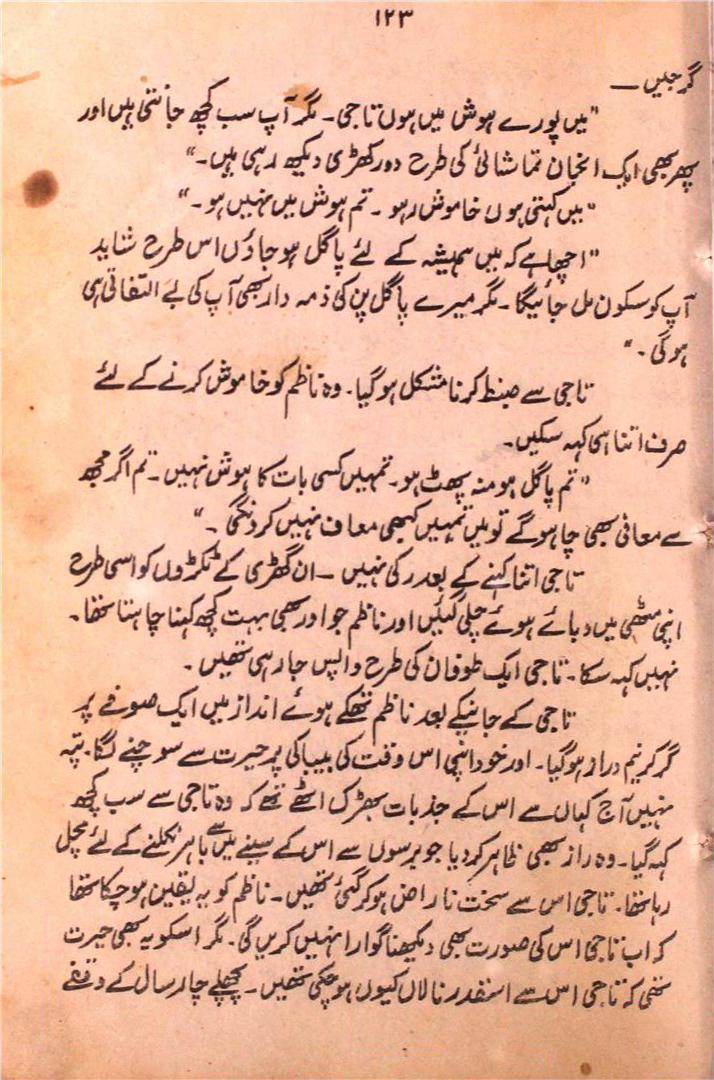 ۱۲۳
گرجیں —
"میں پورے ہوش میں ہوں تاجی۔ مگر آپ سب کچھ جانتی ہیں اور
پھر بھی ایک انجان تماشائی کی طرح دور کھڑی دیکھ رہی ہیں۔"
"میں کہتی ہوں خاموش رہو۔ تم ہوش میں نہیں ہو۔"
"اچھا ہے کہ میں ہمیشہ کے لئے پاگل ہو جاؤں اس طرح شاید
آپ کو سکون مل جائیگا۔ مگر میرے پاگل پن کی ذمہ دار بھی آپ کی بے التفاتی ہی
ہوگی۔"
تاجی سے ضبط کرنا مشکل ہوگیا۔ وہ ناظم کو خاموش کرنے کے لئے
صرف اتنا ہی کہہ سکیں۔
"تم پاگل ہو منہ پھٹ ہو۔ تمہیں کسی بات کا ہوش نہیں۔ تم اگر مجھ
سے معافی بھی چاہو گے تو میں تمہیں کبھی معاف نہیں کرونگی۔"
تاجی اتنا کہنے کے بعد رکی نہیں — ان گھڑی کے ٹکڑوں کو اسی طرح
اپنی مٹھی میں دبائے ہوئے چلی گئیں اور ناظم جو اور بھی بہت کچھ کہنا چاہتا تھا۔
نہیں کہہ سکا۔ تاجی ایک طوفان کی طرح واپس جا رہی تھیں۔
تاجی کے جانیکے بعد ناظم تھکے ہوئے انداز میں ایک صوفے پر
گر کر نیم دراز ہوگیا۔ اور خود اپنی اس وقت کی بیباکی پر حیرت سے سوچنے لگا۔ پتہ
نہیں آج کہاں سے اس کے جذبات بھڑک اٹھے تھے کہ وہ تاجی سے سب کچھ
کہہ گیا۔ وہ راز بھی ظاہر کر دیا جو برسوں سے اس کے سینے میں سے باہر نکلنے کے لئے مچل
رہا تھا۔ تاجی اس سے سخت ناراض ہو کر گئی تھیں۔ ناظم کو یہ یقین ہو چکا تھا
کہ اب تاجی اس کی صورت بھی دیکھنا گوارا نہیں کریں گی۔ مگر اسکو یہ بھی حیرت
تھی کہ تاجی اس سے اسقدر نالاں کیوں ہو چکی تھیں۔ پچھلے چار سال کے وقفے